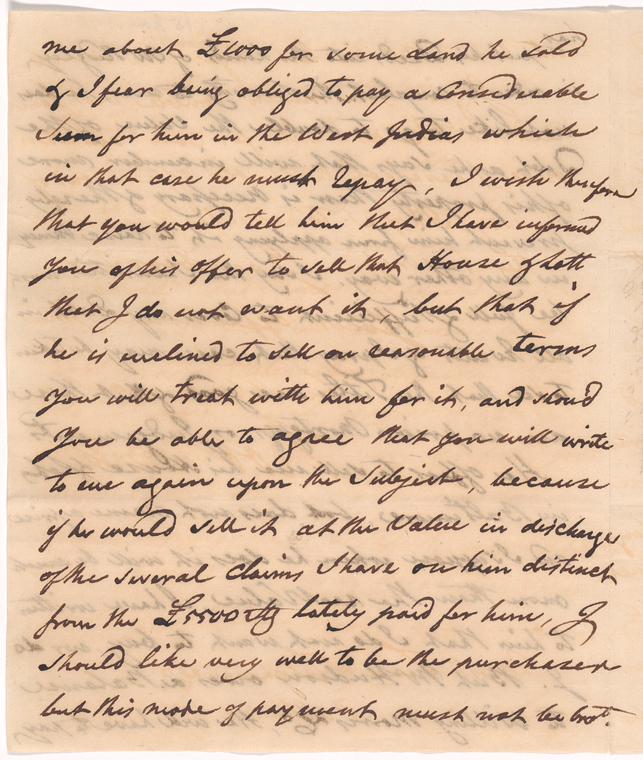 me about £1000 for some Land he sold
& I fear being obliged to pay a Considerable
Sum for him in the West Indias which
in that case he must repay, I wish therefore
that you would tell him that I have informed
you of his offer to sell that House & Lott
that I do not want it, but that if
he is inclined to sell on reasonable terms
you will treat with him for it, and shoud
you be able to agree that you will write
to me again upon the Subject, because
if he would sell it at the Value in discharge
of the several Claims I have on him distinct
from the £5500 Stg lately paid for him, I
should like very well to be the purchaser
but this mode of payment must not be brot.